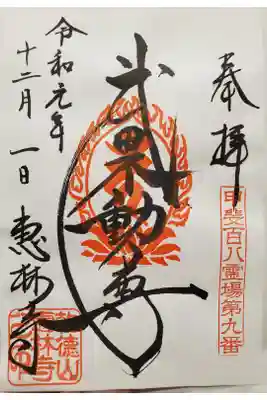 奉拝
甲斐百八霊場第九番
武田不動尊
令和元年
十二月一日
惠林寺
乾德山